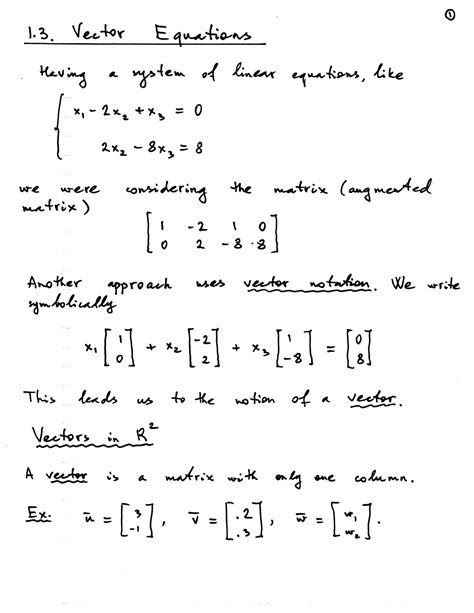 ①
1.3. Vector Equations
Having a system of linear equations, like
x₁ - 2x₂ + x₃ = 0
2x₂ - 8x₃ = 8
we were considering the matrix (augmented
matrix)
[ 1 -2 1 0
0 2 -8 8 ]
Another approach uses vector notation. We write
symbolically
x₁ [1 0] + x₂ [-2 2] + x₃ [1 -8] = [0 8]
This leads us to the notion of a vector.
Vectors in R²
A vector is a matrix with only one column.
Ex: u̅ = [3 -1], v̅ = [.2 .3], w̅ = [w₁ w₂].